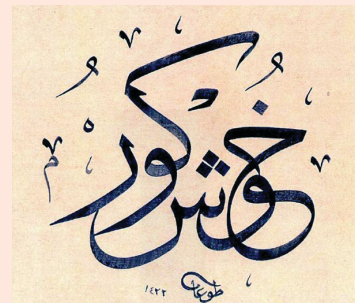 خُوشْ كُورْ
١٤٢٢